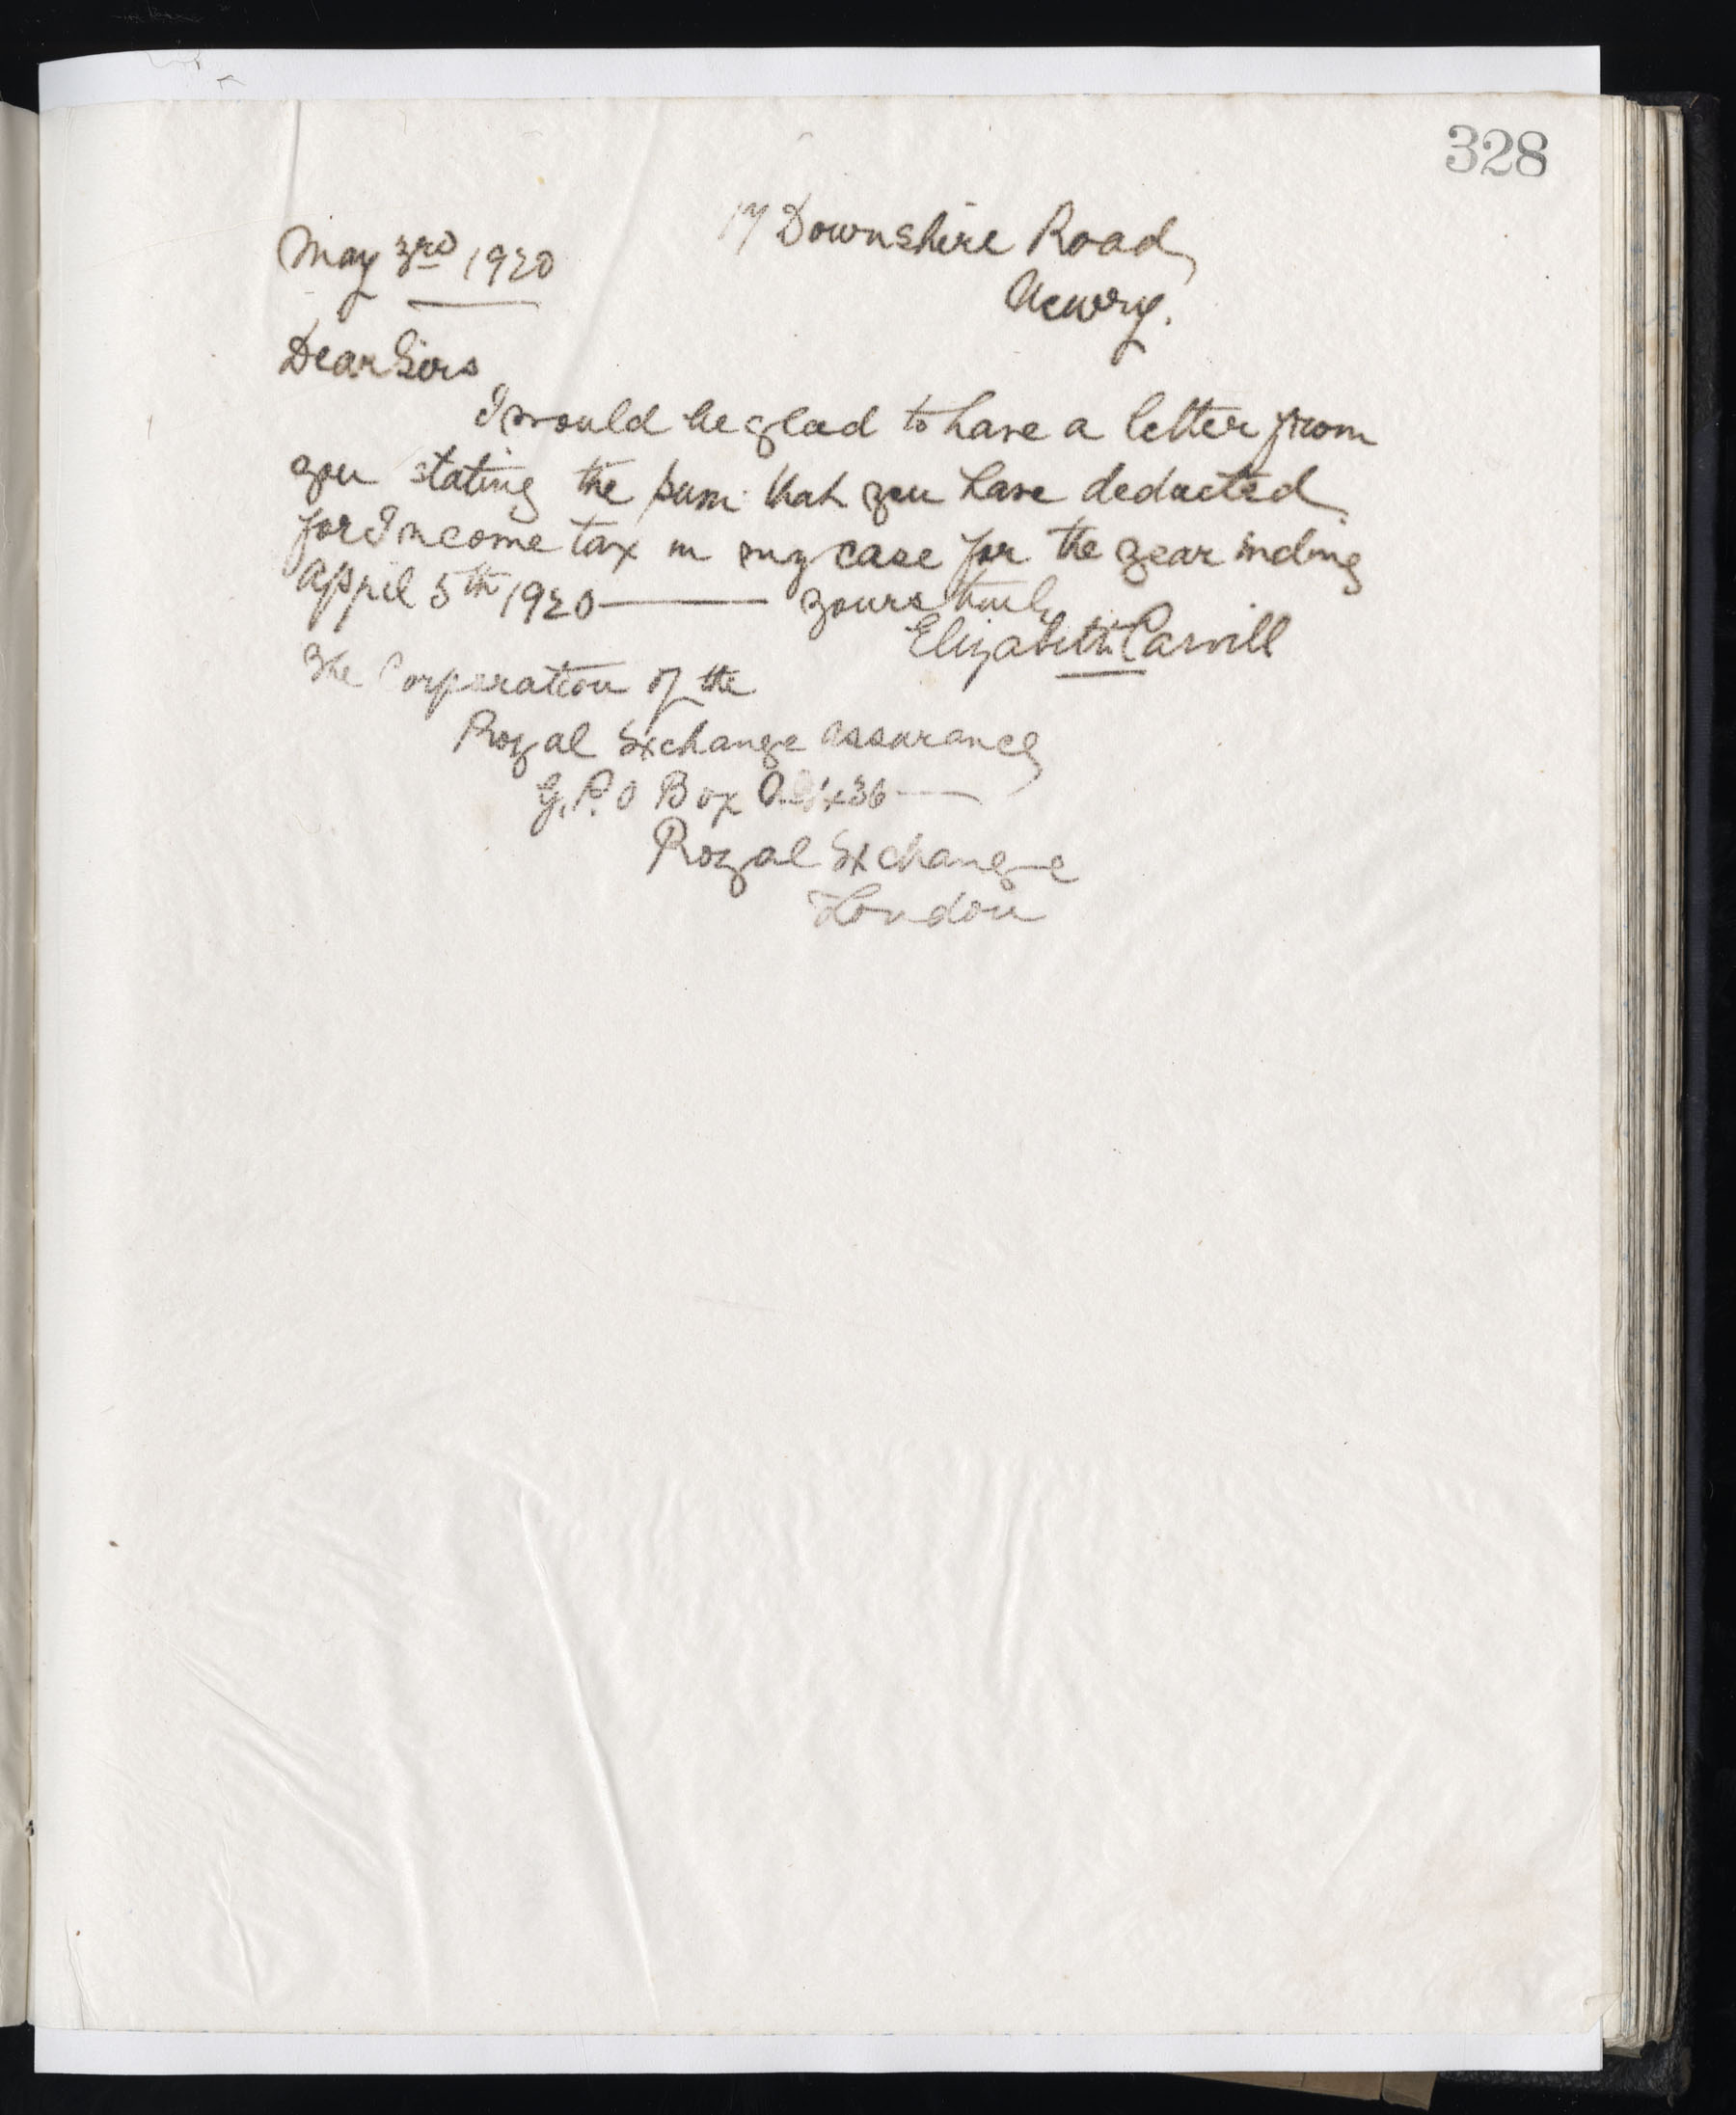 328
17 Downshire Road,
May 3rd 1920
Newry.
Dear Sirs
I would be glad to have a letter from
you stating the sum that you have deducted
for Income tax in my case for the year inding
April 5th 1920 — yours truly
Elizabeth Carvill
The Corporation of the
Royal Exchange assurance,
G.P.O Box
Royal Exchange
London